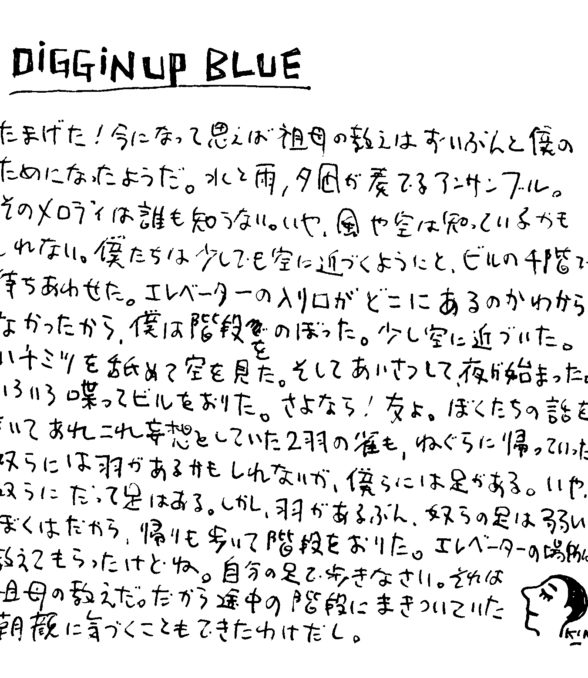 DiGGiNUP BLUE
たまげた！今になって思えば祖母の教えはずいぶんと僕の
ためになったようだ。水と雨,夕凪が奏でるアンサンブル。
そのメロディは誰も知らない。いや,風や空は知っているかも
しれない。僕たちは少しでも空に近づくようにと,ビルの4階で
待ちあわせた。エレベーターの入り口がどこにあるのかわから
なかったから,僕は階段をのぼった。少し空に近づいた。
ハチミツを舐めて空を見た。そしてあいさつして,夜が始まった。
いろいろ喋ってビルをおりた。さよなら！友よ。ぼくたちの話を
きいてあれこれ妄想としていた2羽の雀も,ねぐらに帰っていった
奴らには羽があるかもしれないが,僕らには足がある。いや,
奴らにだって足はある。しかし,羽があるぶん,奴らの足は弱い
ぼくはだから,帰りも歩いて階段をおりた。エレベーターの場所は
教えてもらったけどね。自分の足で歩きなさい。それは
祖母の教えだ。だから途中の階段にまきついていた
朝顔に気づくこともできたわけだし。